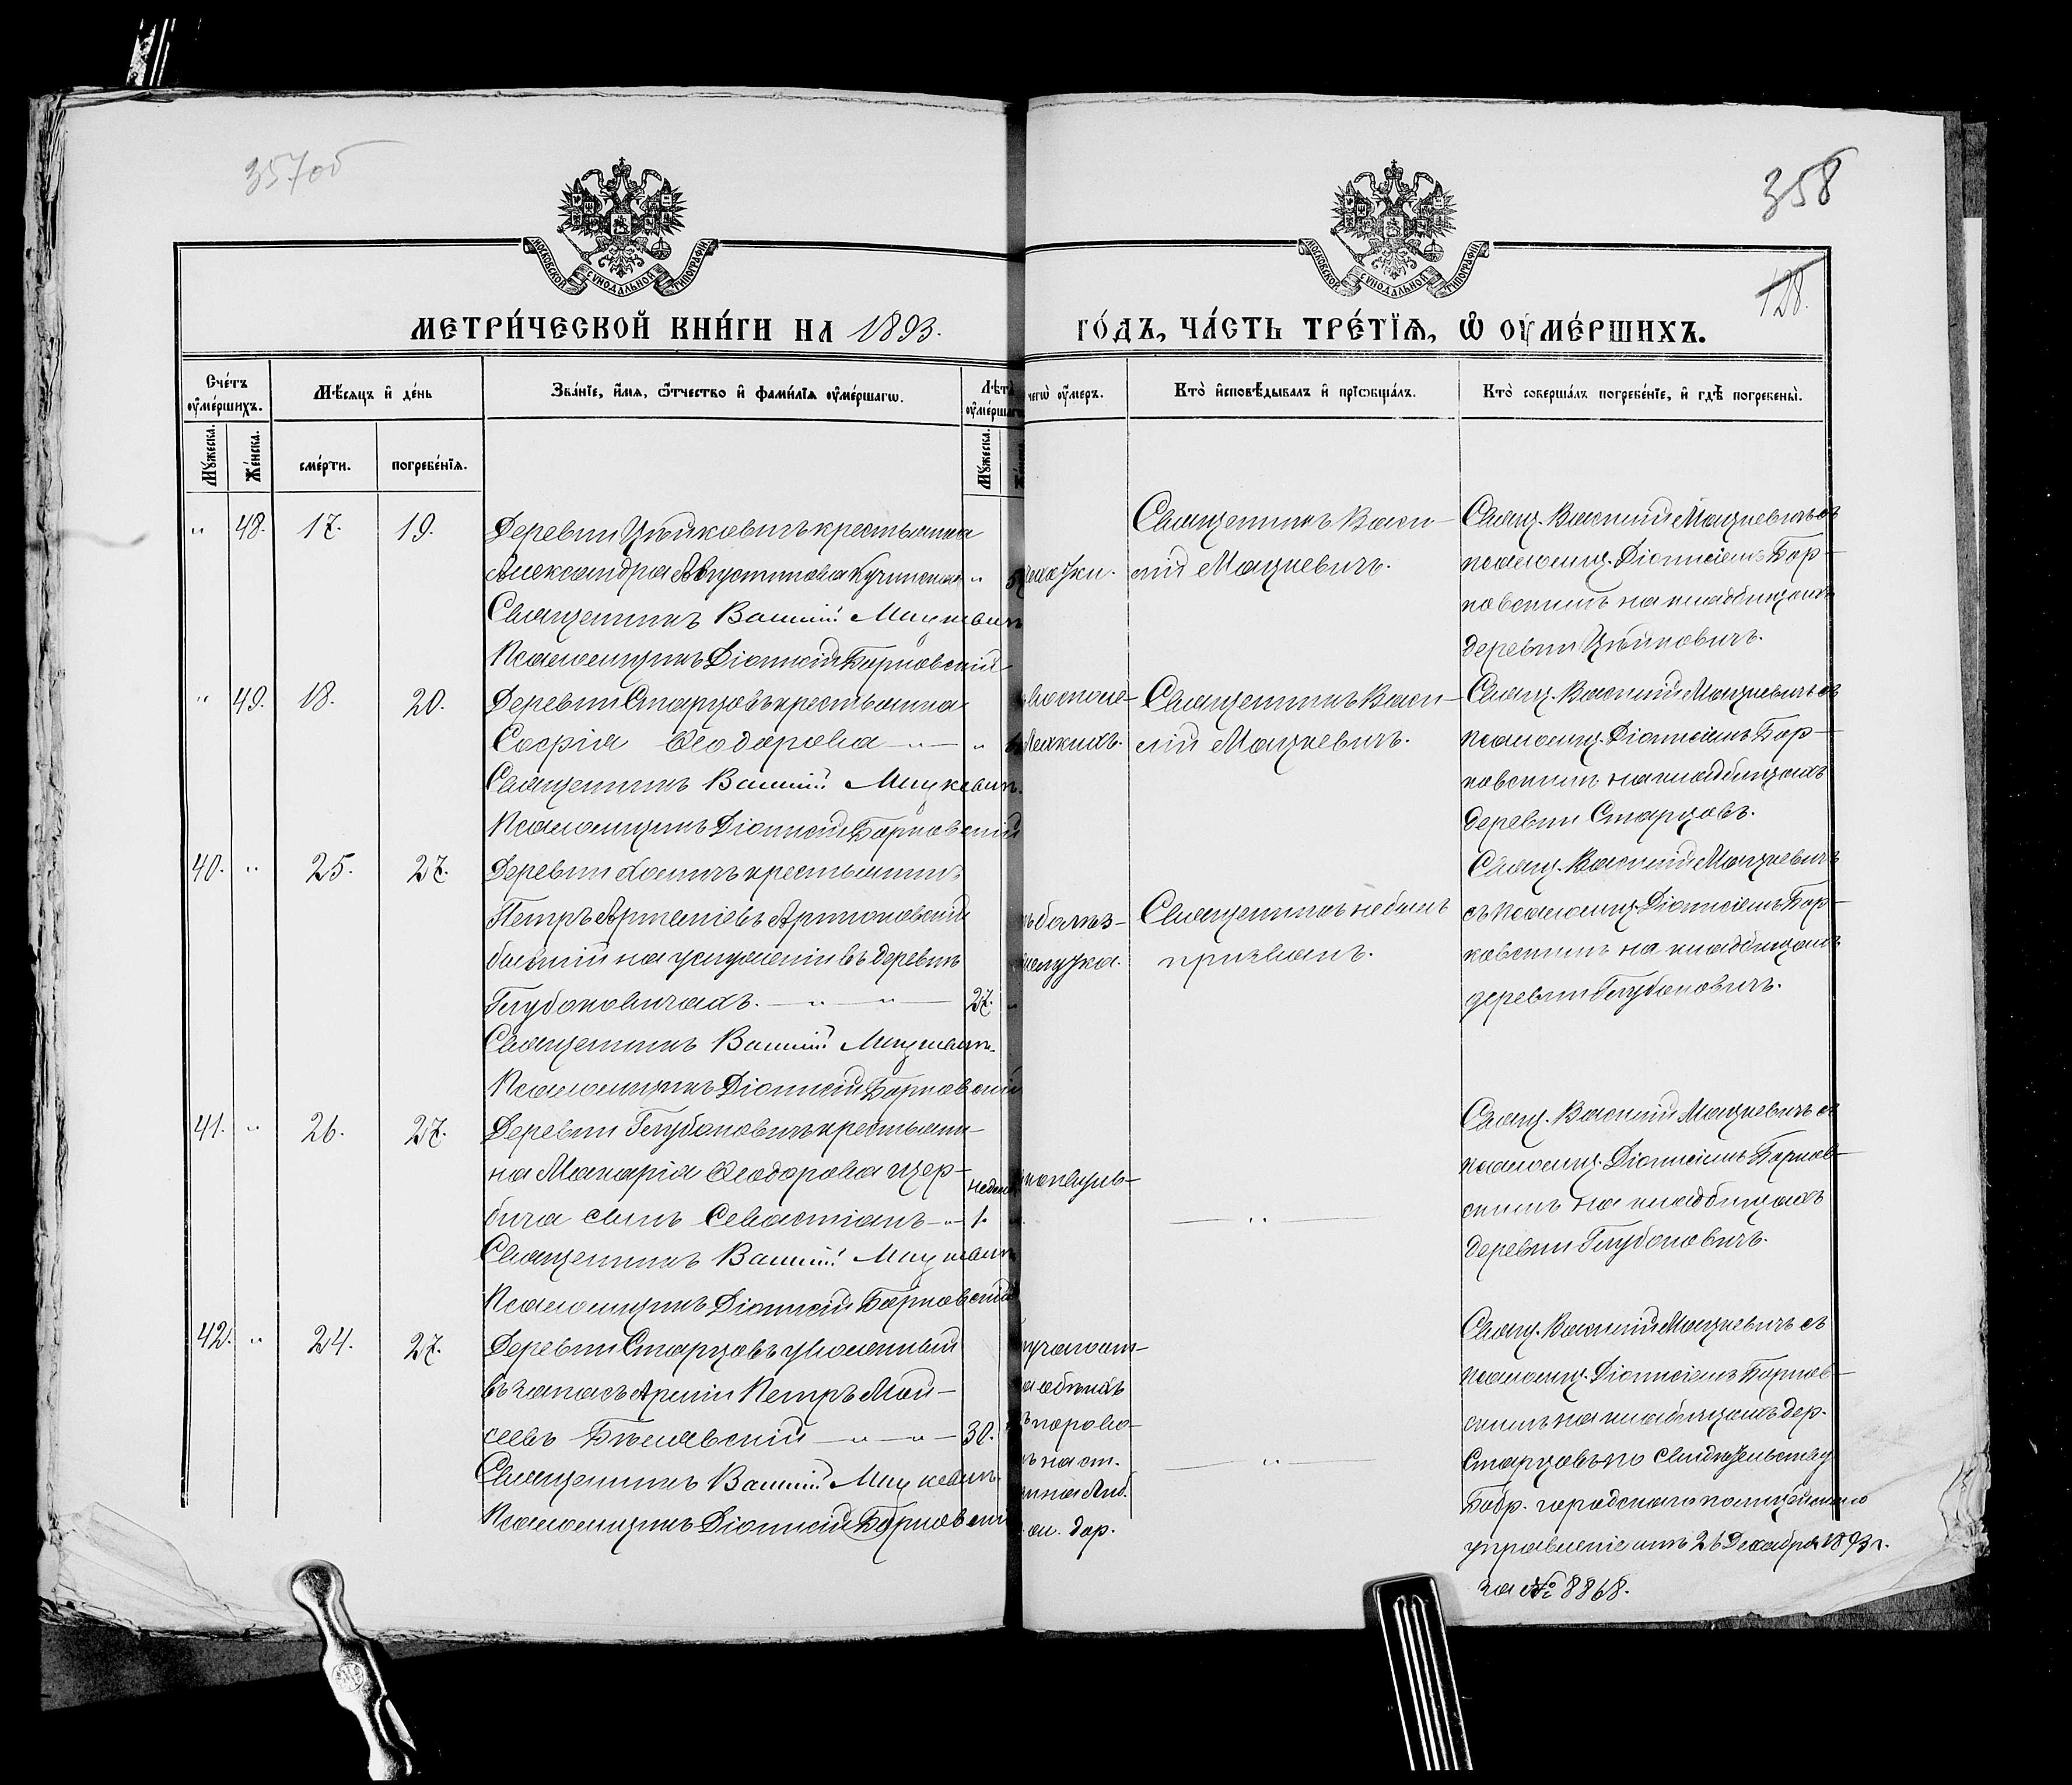 357об
358
128.
МОСКОВСКОЙ СѴНОДАЛЬНОЙ ТИПОГРАФІИ
МОСКОВСКОЙ СѴНОДАЛЬНОЙ ТИПОГРАФІИ
МЕТРИ́ЧЕСКОЙ КНИ́ГИ НА 1893.
ГО́ДЪ, ЧА́СТЬ ТРЕ́ТЇѦ, Ѽ ОУМЕ́РШИХЪ.
Сче́тъ
оумéршихъ.
Мѣ́сяцъ и де́нь
Зва́нїе, и́мѧ, ѻ҆́тчество и фами́лїѧ оумéршагѡ.
Лѣта
оумéршагѡ
чегѡ̀ оу́меръ.
Кто̀ и҆сповѣ́дывалъ и прїѡбща́лъ.
Кто̀ соверша́лъ погребе́нїе, и гдѣ̀ погребены̀.
Мꙋ́жеска.
Же́нска.
сме́рти.
погребе́нїѧ.
Мꙋ́жеска.
" 48. 17. 19.
Деревни Цѣйковичъ крестьянка
Александра Августинова Кучинская "
Священникъ Василій Мацкевичъ
Псаломщикъ Діонисій Борковскій
Священникъ Васи-
лій Мацкевичъ.
Свящ. Василій Мацкевичъ съ
псаломщ. Діонисіемъ Бор-
ковскимъ на кладбищахъ
деревни Цѣйковичъ.
" 49. 18. 20.
Деревни Старцовъ крестьянка
Софія Ѳеодорова — " — "
Священникъ Василій Мацкевичъ.
Псаломщикъ Діонисій Борковскій
Священникъ Васи-
лій Мацкевичъ.
Свящ. Василій Мацкевичъ съ
псаломщ. Діонисіемъ Бор-
ковскимъ на кладбищахъ
деревни Старцовъ.
40. " 25. 27.
Деревни крестьянинъ
Петръ
бывшій на услуженіи въ деревнѣ
Глубоковичахъ. — " — " — 27.
Священникъ Василій Мацкевичъ.
Псаломщикъ Діонисій Борковскій
болѣз-
желудка.
Священникъ не былъ
призванъ.
Свящ. Василій Мацкевичъ
съ псаломщ. Діонисіемъ Бор-
ковскимъ на кладбищахъ
деревни Глубоковичъ.
41. " 26. 27.
Деревни Глубоковичъ крестьяни-
на Макарія Ѳеодорова Щер-
бича сынъ Севастіанъ — " — 1.
Священникъ Василій Мацкевичъ
Псаломщикъ Діонисій Борковскій
— " —
Свящ. Василій Мацкевичъ съ
псаломщ. Діонисіемъ Борков-
скимъ на кладбищахъ
деревни Глубоковичъ.
42. " 24. 27.
Деревни Старцовъ уволенный
въ запасъ Арміи Петръ Мои-
сеевъ Бѣлявскій — " — " — 30.
Священникъ Василій Мацкевичъ.
Псаломщикъ Діонисій Борковскій
на ст.
дор.
— " —
Свящ. Василій Мацкевичъ съ
псаломщ. Діонисіемъ Борков-
скимъ на кладбищахъ дер.
Старцовъ по свидѣтельству
Бобр. городскаго полицейскаго
управленіе отъ 26 Декабря 1893 г.
за № 8868.